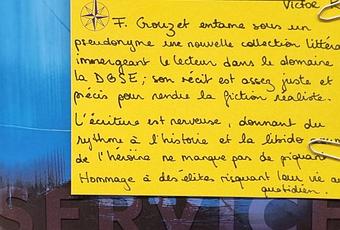 Victor
F. Crouzet entame sous un
pseudonyme une nouvelle collection littéra
immergeant le lecteur dans le domaine
la DGSE ; son récit est assez juste et
précis pour rendre la fiction réaliste.
L'écriture est nerveuse, donnant du
rythme à l'histoire et la libido
de l'héroïne ne manque pas de piquant
Hommage à des élites risquant leur vie au
quotidien.
SERVICE